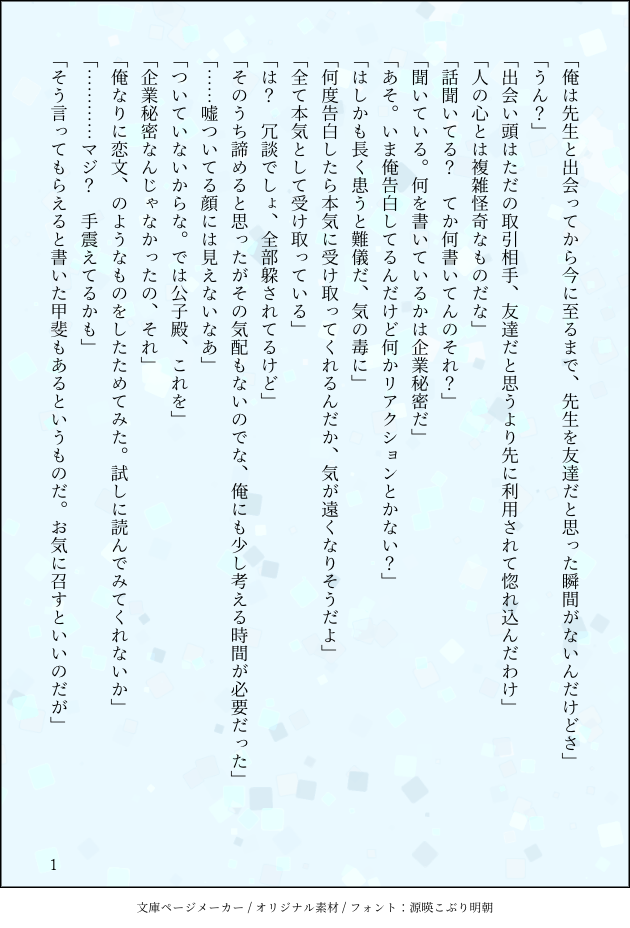 「俺は先生と出会ってから今に至るまで、先生を友達だと思った瞬間がないんだけどさ」
「うん？」
「出会い頭はただの取引相手、友達だと思うより先に利用されて惚れ込んだわけ」
「人の心とは複雑怪奇なものだな」
「話聞いてる？　てか何書いてんのそれ？」
「聞いている。何を書いているかは企業秘密だ」
「あそ。いま俺告白してるんだけど何かリアクションとかない？」
「はしかも長く患うと難儀だ、気の毒に」
「何度告白したら本気に受け取ってくれるんだか、気が遠くなりそうだよ」
「全て本気として受け取っている」
「は？　冗談でしょ、全部躱されてるけど」
「そのうち諦めると思ったがその気配もないのでな、俺にも少し考える時間が必要だった」
「……嘘ついてる顔には見えないなあ」
「ついていないからな。では公子殿、これを」
「企業秘密なんじゃなかったの、それ」
「俺なりに恋文、のようなものをしたためてみた。試しに読んでみてくれないか」
「…………マジ？　手震えてるかも」
「そう言ってもらえると書いた甲斐もあるというものだ。お気に召すといいのだが」
1
文庫ページメーカー / オリジナル素材 / フォント：源暎こぶり明朝